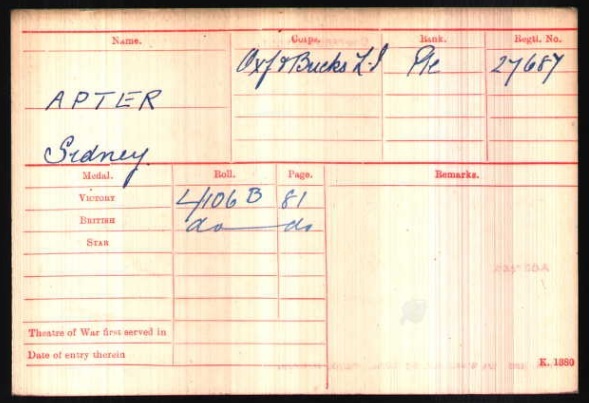 Name. Corps. Rank. Regtl. No.
Oxf & Bucks L.I Pte 27687
APTER
Sidney.
Medal. Roll. Page. Remarks.
VICTORY L/106 B 81
BRITISH do do
STAR
Theatre of War first served in
Date of entry therein
K. 1380